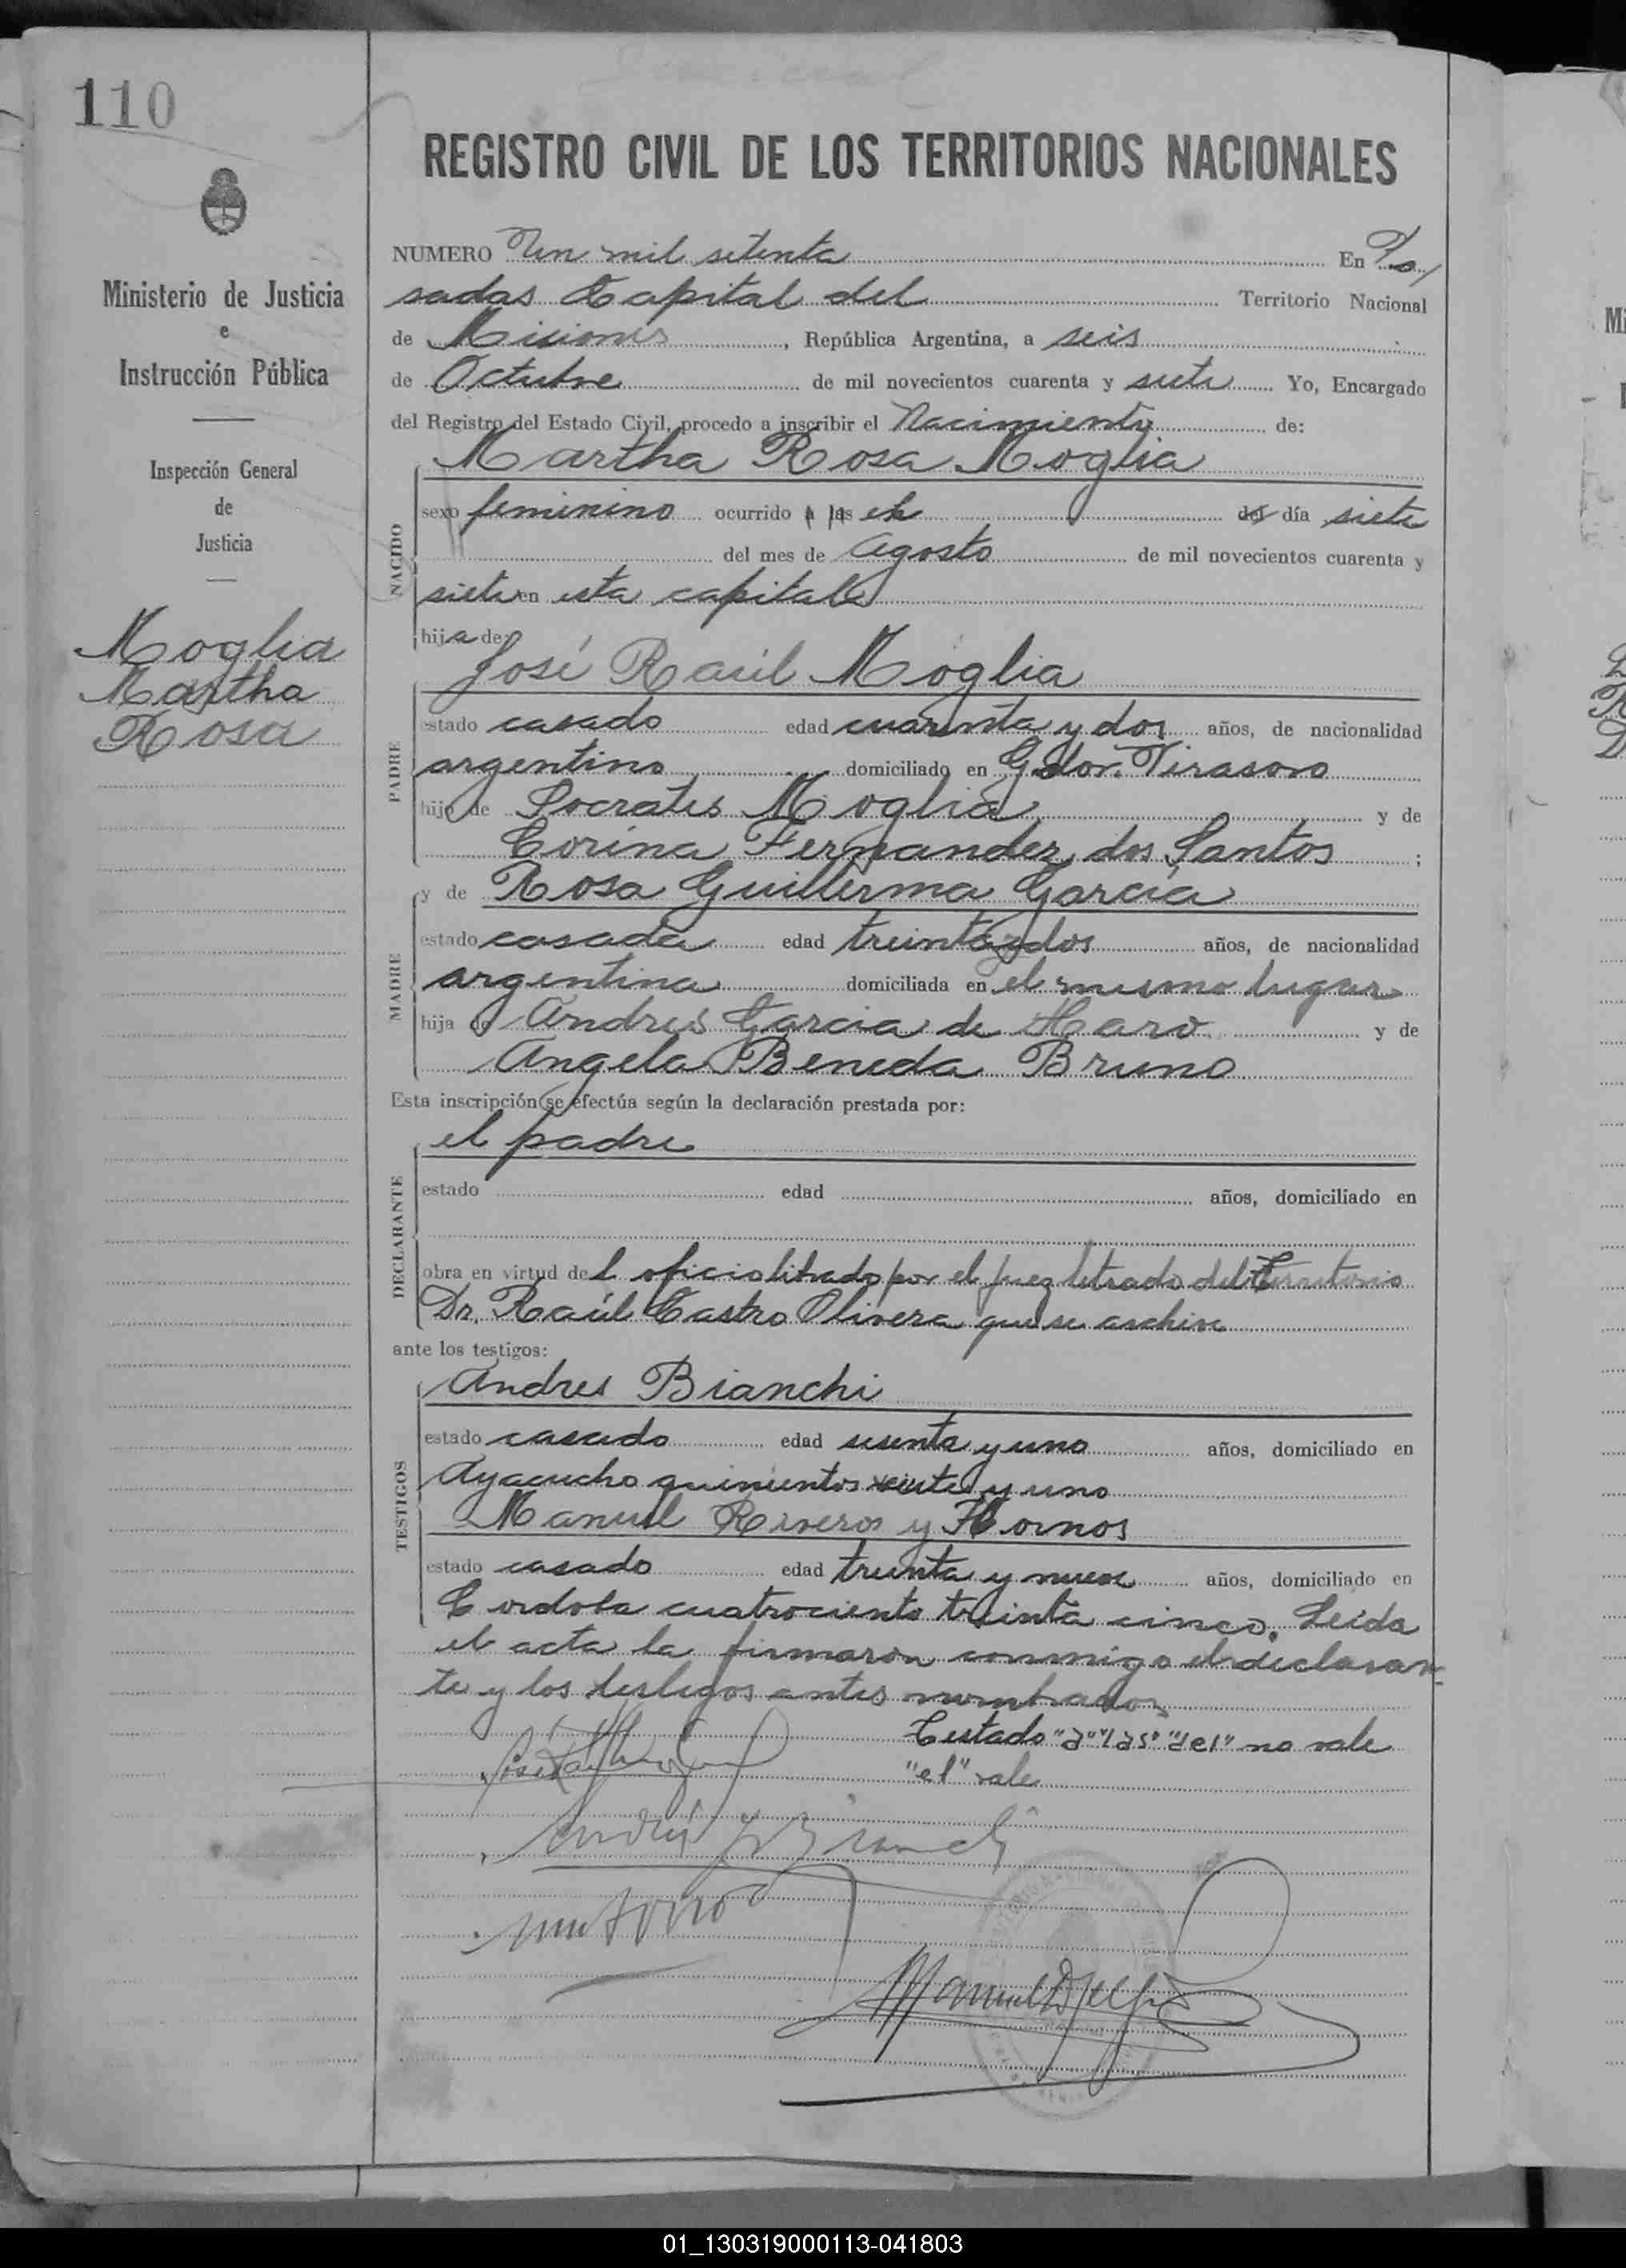 110
REGISTRO CIVIL DE LOS TERRITORIOS NACIONALES
Ministerio de Justicia
e
Instrucción Pública
Inspección General
de
Justicia
Moglia
Martha
Rosa
NUMERO Un mil setenta En Po/
sadas Capital del Territorio Nacional
de Misiones, República Argentina, a seis
de Octubre de mil novecientos cuarenta y siete Yo, Encargado
del Registro del Estado Civil, procedo a inscribir el Nacimiento de:
Martha Rosa Moglia
NACIDO
sexo feminino ocurrido a las el del día siete
del mes de Agosto de mil novecientos cuarenta y
siete en esta capital
hija de:
José Raúl Moglia
PADRE
estado casado edad cuarenta y dos años, de nacionalidad
argentino domiciliado en Gdor. Virasoro
hijo de Socrates Moglia y de
Corina Fernandez dos Santos;
y de Rosa Guillerma García
MADRE
estado casada edad treinta y dos años, de nacionalidad
argentina domiciliada en el mismo lugar
hija de Andres Garcia de Haro y de
Angela Beneda Bruno
Esta inscripción se efectúa según la declaración prestada por:
el padre
DECLARANTE
estado edad años, domiciliado en
obra en virtud del oficio librado por el juez letrado del Territorio
Dr. Raúl Castro Olivera que se archiva
ante los testigos:
Andres Bianchi
TESTIGOS
estado casado edad sesenta y uno años, domiciliado en
Ayacucho quinientos veinte y uno
Manuel Riveros y Hornos
estado casado edad treinta y nueve años, domiciliado en
Cordoba cuatrociento treinta cinco. Leida
el acta la firmaron conmigo el declaran
te y los testigos antes nombrados
Testado "a" "las" "del" no vale
"el" vale
01_130319000113-041803